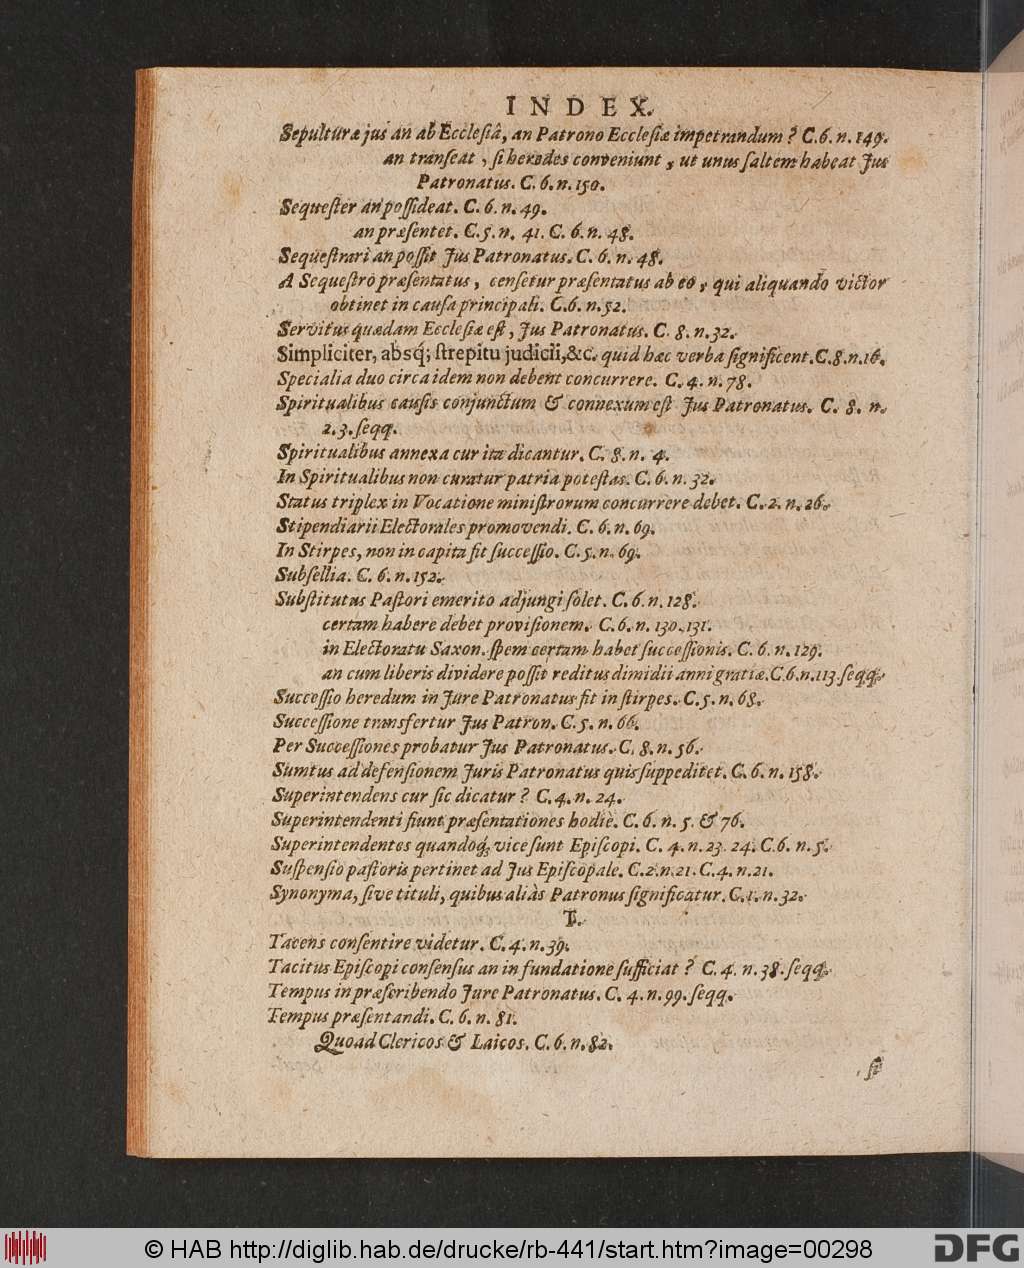 INDEX.
Sepulturæ jus an ab Ecclesiâ, an Patrono Ecclesiæ impetrandum? C.6. n. 149.
an transeat, si heredes conveniunt, ut unus saltem habeat Jus
Patronatus. C. 6. n. 150.
Sequester an possideat. C. 6. n. 49.
an præsentet. C. 5. n. 41. C. 6. n. 48.
Sequestrari an possit Jus Patronatus. C. 6. n. 48.
A Sequestro præsentatus, censetur præsentatus ab eo, qui aliquando victor
obtinet in causa principali. C.6. n. 52.
Servitus quædam Ecclesiæ est, Jus Patronatus. C. 8. n. 32.
Simpliciter, absq́; strepitu judicii, &c. quid hæc verba significent. C. 8. n. 16.
Specialia duo circa idem non debent concurrere. C. 4. n. 78.
Spiritualibus causis conjunctum & connexum est Jus Patronatus. C. 8. n.
2. 3. seqq.
Spiritualibus annexa cur ita dicantur. C. 8. n. 4.
In Spiritualibus non curatur patria potestas. C. 6. n. 32.
Status triplex in Vocatione ministrorum concurrere debet. C. 2. n. 26.
Stipendiarii Electorales promovendi. C. 6. n. 69.
In Stirpes, non in capita fit successio. C. 5. n. 69.
Subsellia. C. 6. n. 152.
Substitutus Pastori emerito adjungi solet. C. 6. n. 128.
certam habere debet provisionem. C. 6. n. 130. 131.
in Electoratu Saxon. spem certam habet successionis. C. 6. n. 129.
an cum liberis dividere possit reditus dimidii anni gratiæ. C.6. n. 113. seqq.
Successio heredum in Jure Patronatus fit in stirpes. C. 5. n. 68.
Successione transfertur Jus Patron. C. 5. n. 66.
Per Successiones probatur Jus Patronatus. C. 8. n. 56.
Sumtus ad defensionem Juris Patronatus quis suppeditet. C. 6. n. 158.
Superintendens cur sic dicatur? C. 4. n. 24.
Superintendenti fiunt præsentationes hodiè. C. 6. n. 5. & 76.
Superintendentes quandoq́; vice sunt Episcopi. C. 4. n. 23. 24. C. 6. n. 5.
Suspensio pastoris pertinet ad Jus Episcopale. C. 2. n. 21. C. 4. n. 21.
Synonyma, sive tituli, quibus aliàs Patronus significatur. C. 1. n. 32.
T.
Tacens consentire videtur. C. 4. n. 39.
Tacitus Episcopi consensus an in fundatione sufficiat? C. 4. n. 38. seqq.
Tempus in præscribendo Jure Patronatus. C. 4. n. 99. seqq.
Tempus præsentandi. C. 6. n. 81.
Quoad Clericos & Laicos. C. 6. n. 82.
© HAB http://diglib.hab.de/drucke/rb-441/start.htm?image=00298
DFG